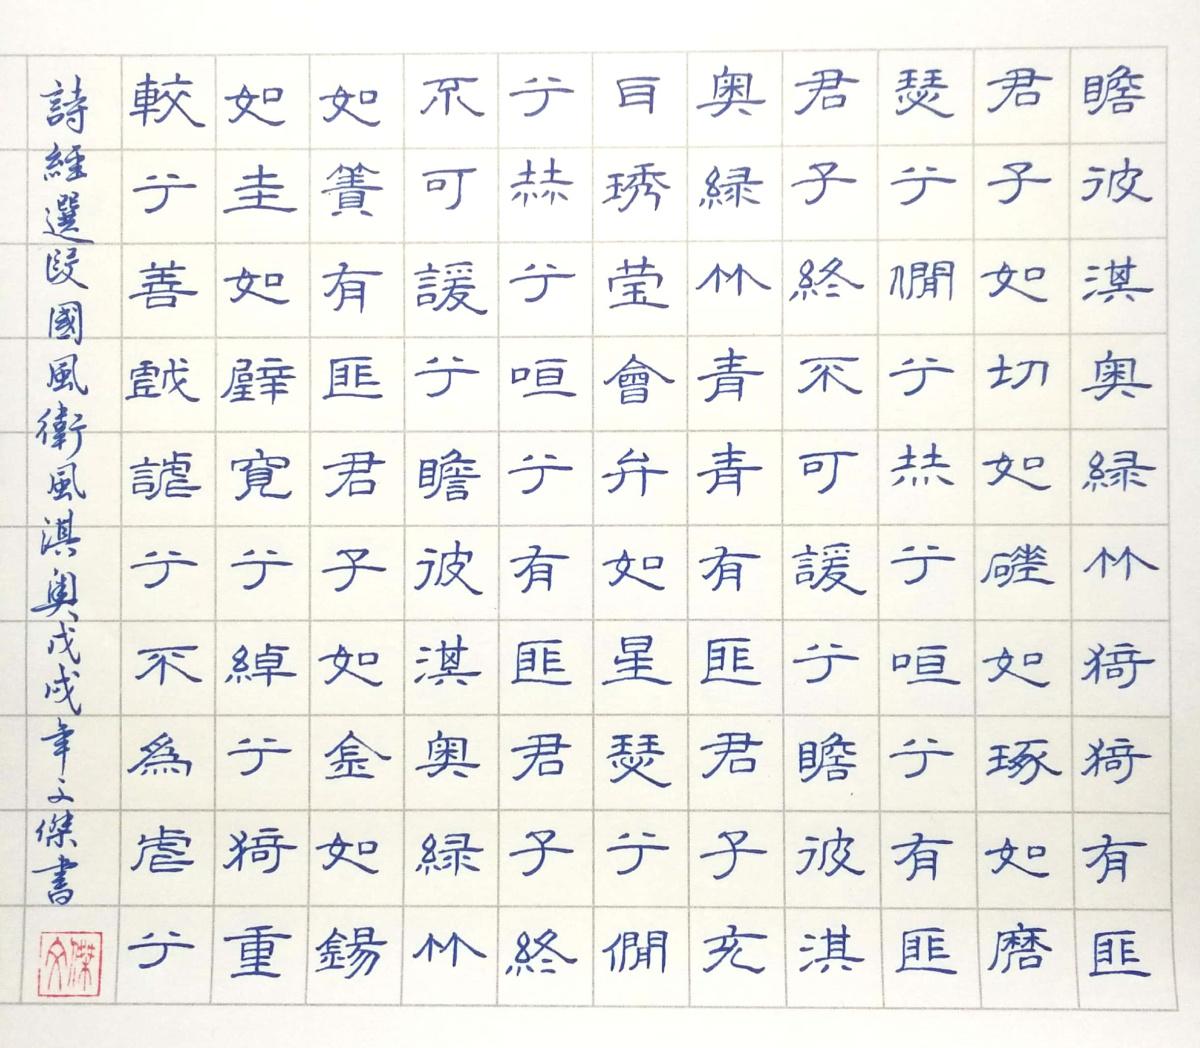 瞻彼淇奥緑竹猗猗有匪
君子如切如磋如琢如磨
瑟兮僩兮赫兮咺兮有匪
君子終不可諼兮瞻彼淇
奥緑竹青青有匪君子充
耳琇莹會弁如星瑟兮僩
兮赫兮咺兮有匪君子終
不可諼兮瞻彼淇奥緑竹
如簀有匪君子如金如錫
如圭如璧寬兮綽兮猗重
較兮善戲謔兮不為虐兮
詩經選段國風衛風淇奧戊戌年文傑書
文傑